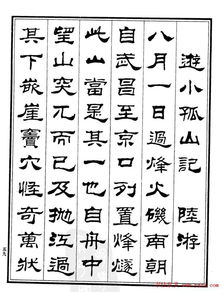 遊小孤山記　陸游
八月一日過烽火磯南朝
自武昌至京口列置烽燧
此山當是其一也自舟中
望山突兀而已及抛江過
其下嵌崖竇穴怪奇萬狀